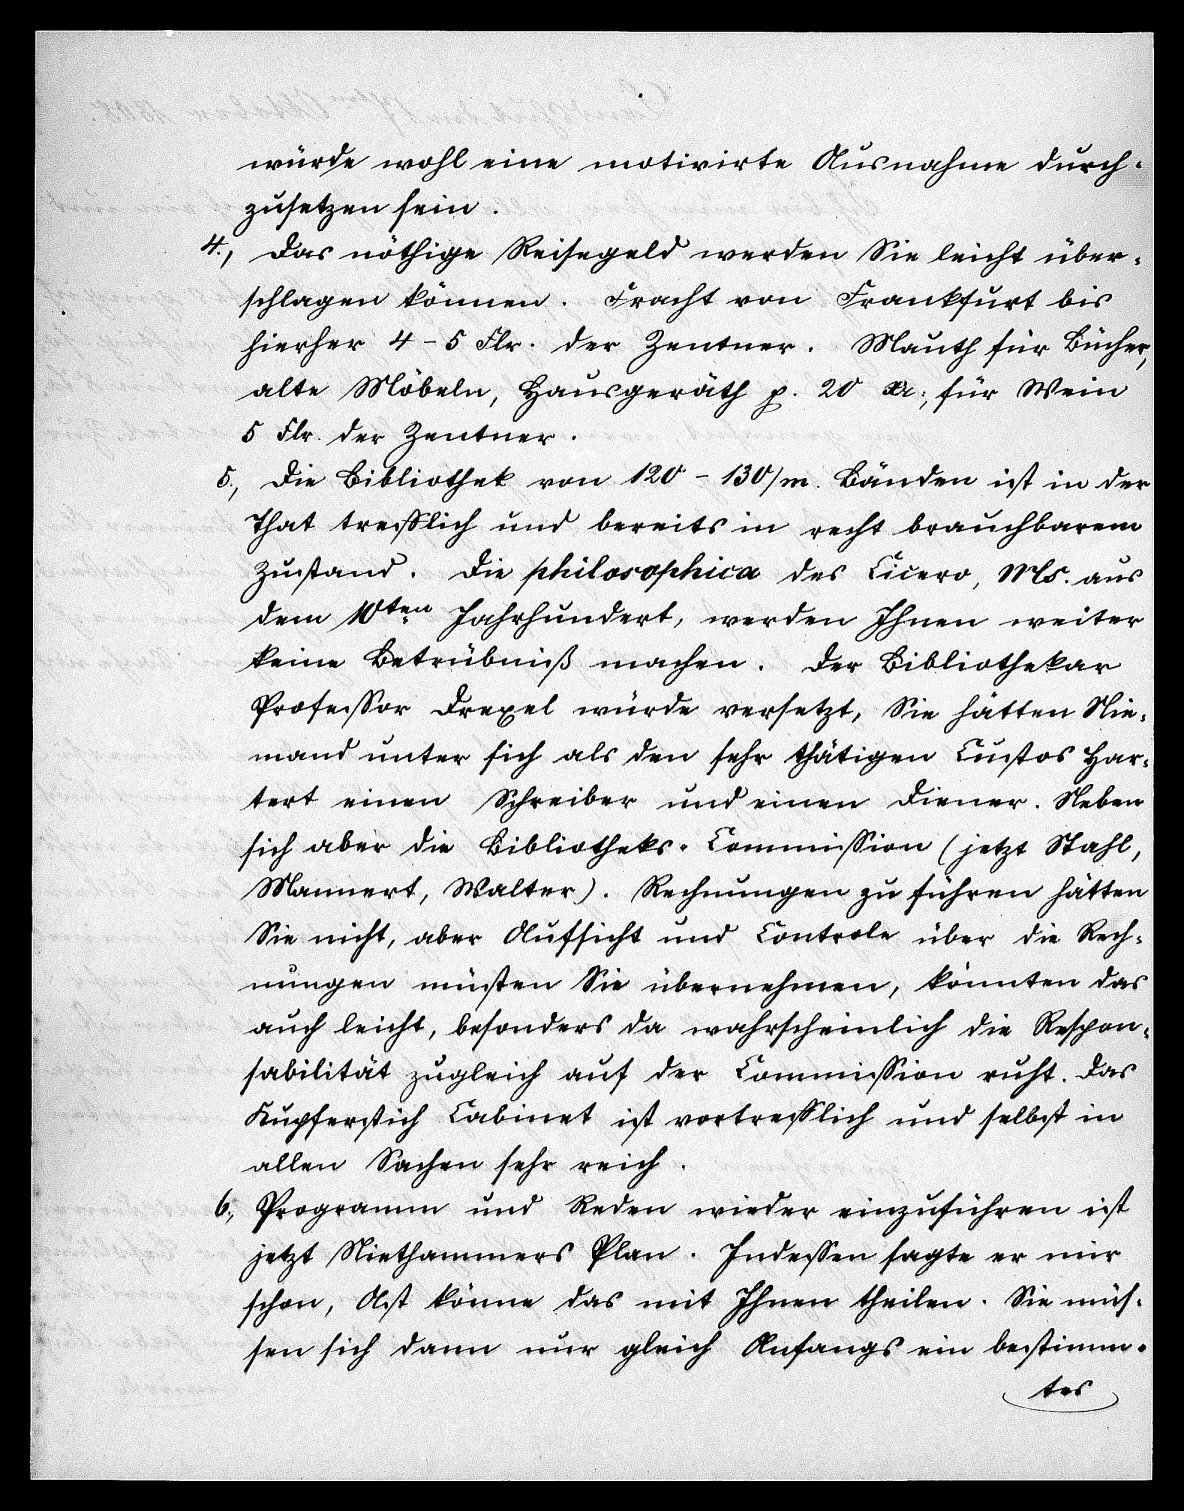 würde wohl eine motivirte Ausnahme durch-
zusetzen sein.
4., Das nöthige Reisegeld werden Sie leicht über-
schlagen können. Fracht von Frankfurt bis
hierher 4 - 5 Flr. der Zentner. Mauth für Bücher,
alte Möbeln, Hausgeräth p. 20 xr., für Wein
5 Flr. der Zentner.
5., Die Bibliothek von 120 - 130/m. Bänden ist in der
That trefflich und bereits in recht brauchbarem
Zustand. Die philosophica des Cicero, Ms. aus
dem 10ten Jahrhundert, werden Ihnen weiter
keine Betrübniß machen. Der Bibliothekar
Professor Drexel würde versetzt, Sie hätten Nie-
mand unter sich als den sehr thätigen Custos Har-
tert einen Schreiber und einen Diener. Neben
sich aber die Bibliotheks-Commission (jetzt Stahl,
Mannert, Walter). Rechnungen zu führen hätten
Sie nicht, aber Aufsicht und Controle über die Rech-
nungen müsten Sie übernehmen, könnten das
auch leicht, besonders da wahrscheinlich die Respon-
sabilität zugleich auf der Commission ruht. Das
Kupferstich Cabinet ist vortrefflich und selbst in
allen Sachen sehr reich.
6., Programm und Reden wieder einzuführen ist
jetzt Niethammers Plan. Indessen sagte er mir
schon, Ast könne das mit Ihnen theilen. Sie müs-
sen sich dann nur gleich Anfangs ein bestimm-
tes